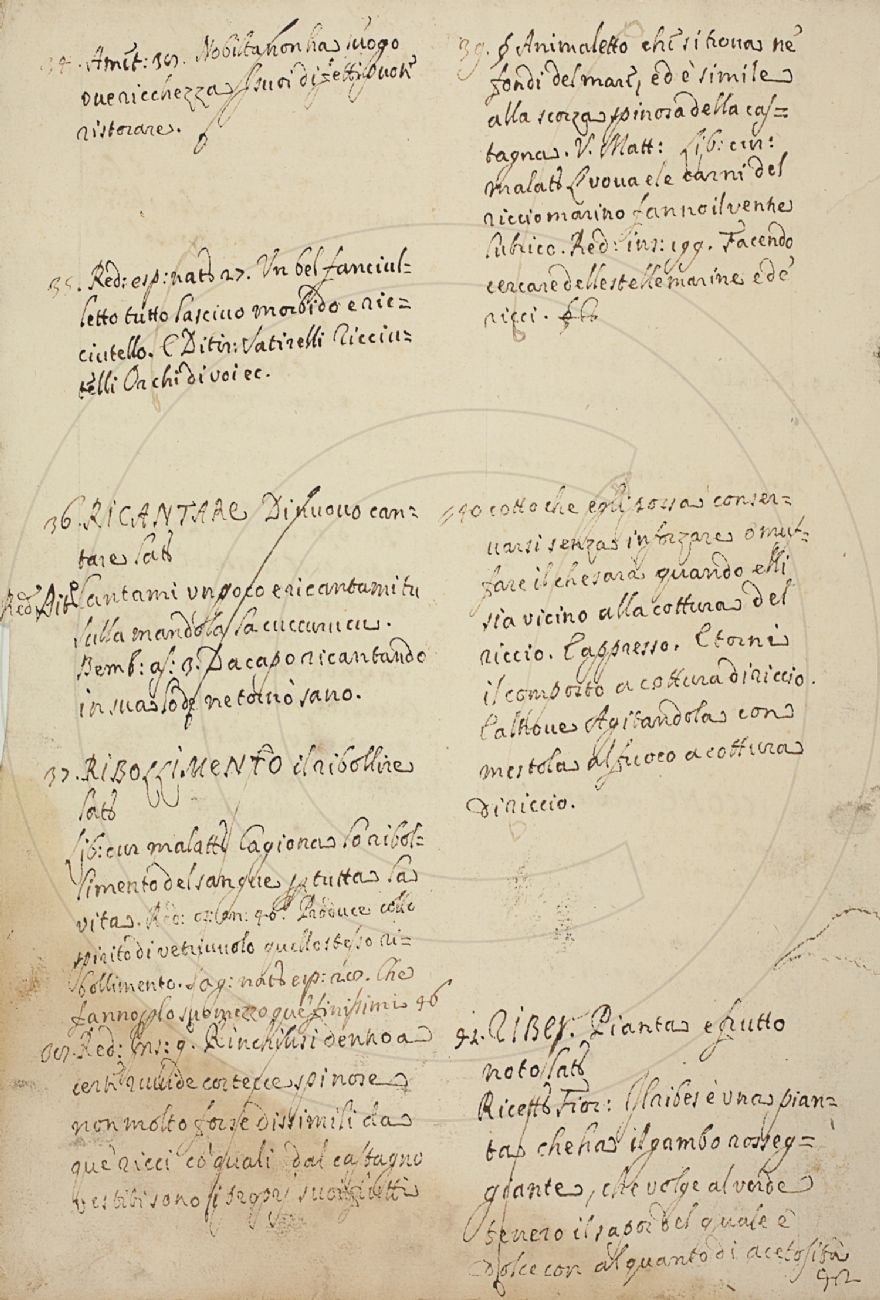 34. Amet: 39. Nobiltà non ha luogo
ove ricchezza i suoi difetti puote
ristorare.
35. Red: esp: nat: 27. Un bel fanciul-
letto tutto lascivo morbido e ric-
ciutello. E Ditir: Satirelli Ricciu-
telli Orchi di voi ec.
36. RICANTARE Di nuovo can-
tare lat
Red. Dit. Cantami un poco e ricantami tu
sulla mandola la cuccurucu.
Bemb: as: 3. Da capo ricantando
in sua lode ne tornò sano.
37. RIBOLLIMENTO il ribollire
lat
Lib: cur malatt Cagiona lo ribol-
limento del sangue p tutta la
vita. Red: Produce collo
spirito di vetriuolo quello stesso ri-
bollimento. Sag: nat esp: Che
fanno p lo sub mezzo que' finissimi 46
Red: Ins: 9. Rinchiusi dentro a
certe ruvide cortecce spinose
non molto forse dissimili da
que' ricci co' quali dal castagno
vestiti sono i suoi frutti
39. § Animaletto che si trova ne'
fondi del mare, ed è simile
alla scorza spinosa della cas-
tagna. V. Matt: Lib: cur:
malatt L'uova e le carni del
riccio marino fanno il ventre
lubrico. Red: Ins: 199. Facendo
cercare delle stelle marine e de'
ricci. §
40 cotto che egli possa conser-
varsi senza inforzare o muf-
fare il che sarà quando elli
sia vicino alla cottura del
riccio. E appresso. E torni
il composto a cottura di riccio.
E altrove Agitandola con
mestola al fuoco a cottura
di riccio.
42. RIBES. Pianta e frutto
noto lat
Ricett Fior: Il ribes è una pian-
ta che ha il gambo rosseg-
giante, che volge al verde
tenero il sapor del quale è
dolce con alquanto di acetosità
42